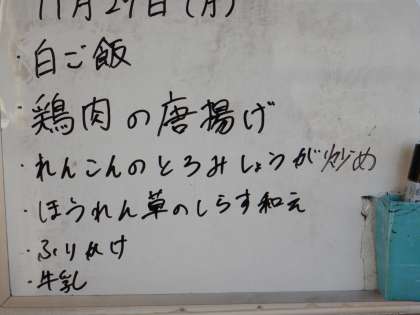 11月29日(月)
・白ご飯
・鶏肉の唐揚げ
・れんこんのとろみしょうが炒め
・ほうれん草のしらす和え
・ふりかけ
・牛乳